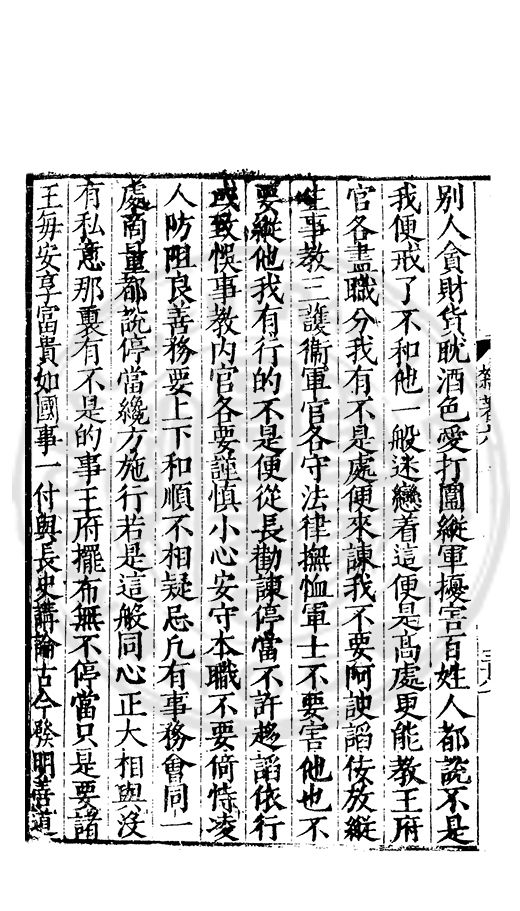 別人貪財貨耽酒色愛打圍縱軍擾害百姓人都說不是
我便戒了不和他一般迷戀着這便是高處更能教王府
官各盡職分我有不是處便來諫我不要阿諛諂佞放縱
生事教三護衛軍官各守法律撫恤軍士不要害他也不
要縱他我有行的不是便從長勸諫停當不許趍諂依行
或致悞事教內官各要謹慎小心安守本職不要倚恃凌
人防阻良善務要上下和順不相疑忌凢有事務會同一
處商量都說停當纔方施行若是這般同心正大相與沒
有私意那裏有不是的事王府擺布無不停當只是要諸
王每安享富貴如國事一付與長史講論古今發明善道